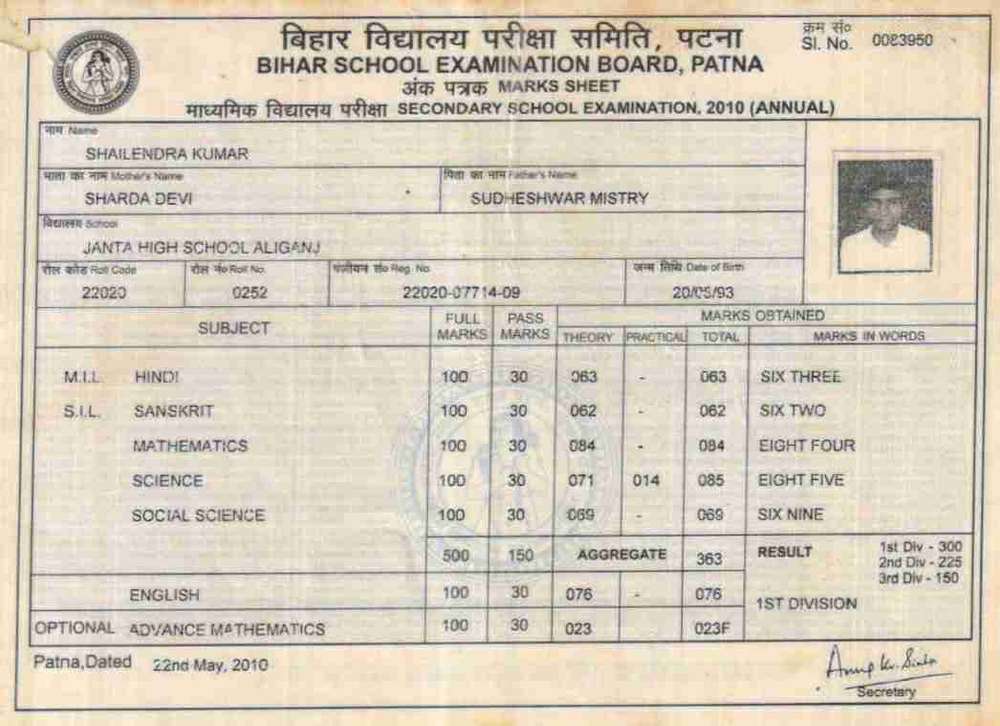 बिहार विद्यालय परीक्षा समिति, पटना
क्रम सं०
Sl. No. 0023950
BIHAR SCHOOL EXAMINATION BOARD, PATNA
अंक पत्रक MARKS SHEET
माध्यमिक विद्यालय परीक्षा SECONDARY SCHOOL EXAMINATION, 2010 (ANNUAL)
नाम Name
SHAILENDRA KUMAR
माता का नाम Mother's Name पिता का नाम Father's Name
SHARDA DEVI SUDHESHWAR MISTRY
विद्यालय School
JANTA HIGH SCHOOL ALIGANJ
रोल कोड Roll Code रोल नं० Roll No. पंजीयन सं० Reg. No. जन्म तिथि Date of Birth
22020 0252 22020-07714-09 20/05/93
SUBJECT FULL MARKS PASS MARKS MARKS OBTAINED
THEORY PRACTICAL TOTAL MARKS IN WORDS
M.I.L. HINDI 100 30 063 - 063 SIX THREE
S.I.L. SANSKRIT 100 30 062 - 062 SIX TWO
MATHEMATICS 100 30 084 - 084 EIGHT FOUR
SCIENCE 100 30 071 014 085 EIGHT FIVE
SOCIAL SCIENCE 100 30 069 - 069 SIX NINE
500 150 AGGREGATE 363 RESULT 1st Div - 300
2nd Div - 225
3rd Div - 150
ENGLISH 100 30 076 - 076 1ST DIVISION
OPTIONAL ADVANCE MATHEMATICS 100 30 023 023F
Patna,Dated 22nd May, 2010
Anup Kr. Sinha
Secretary